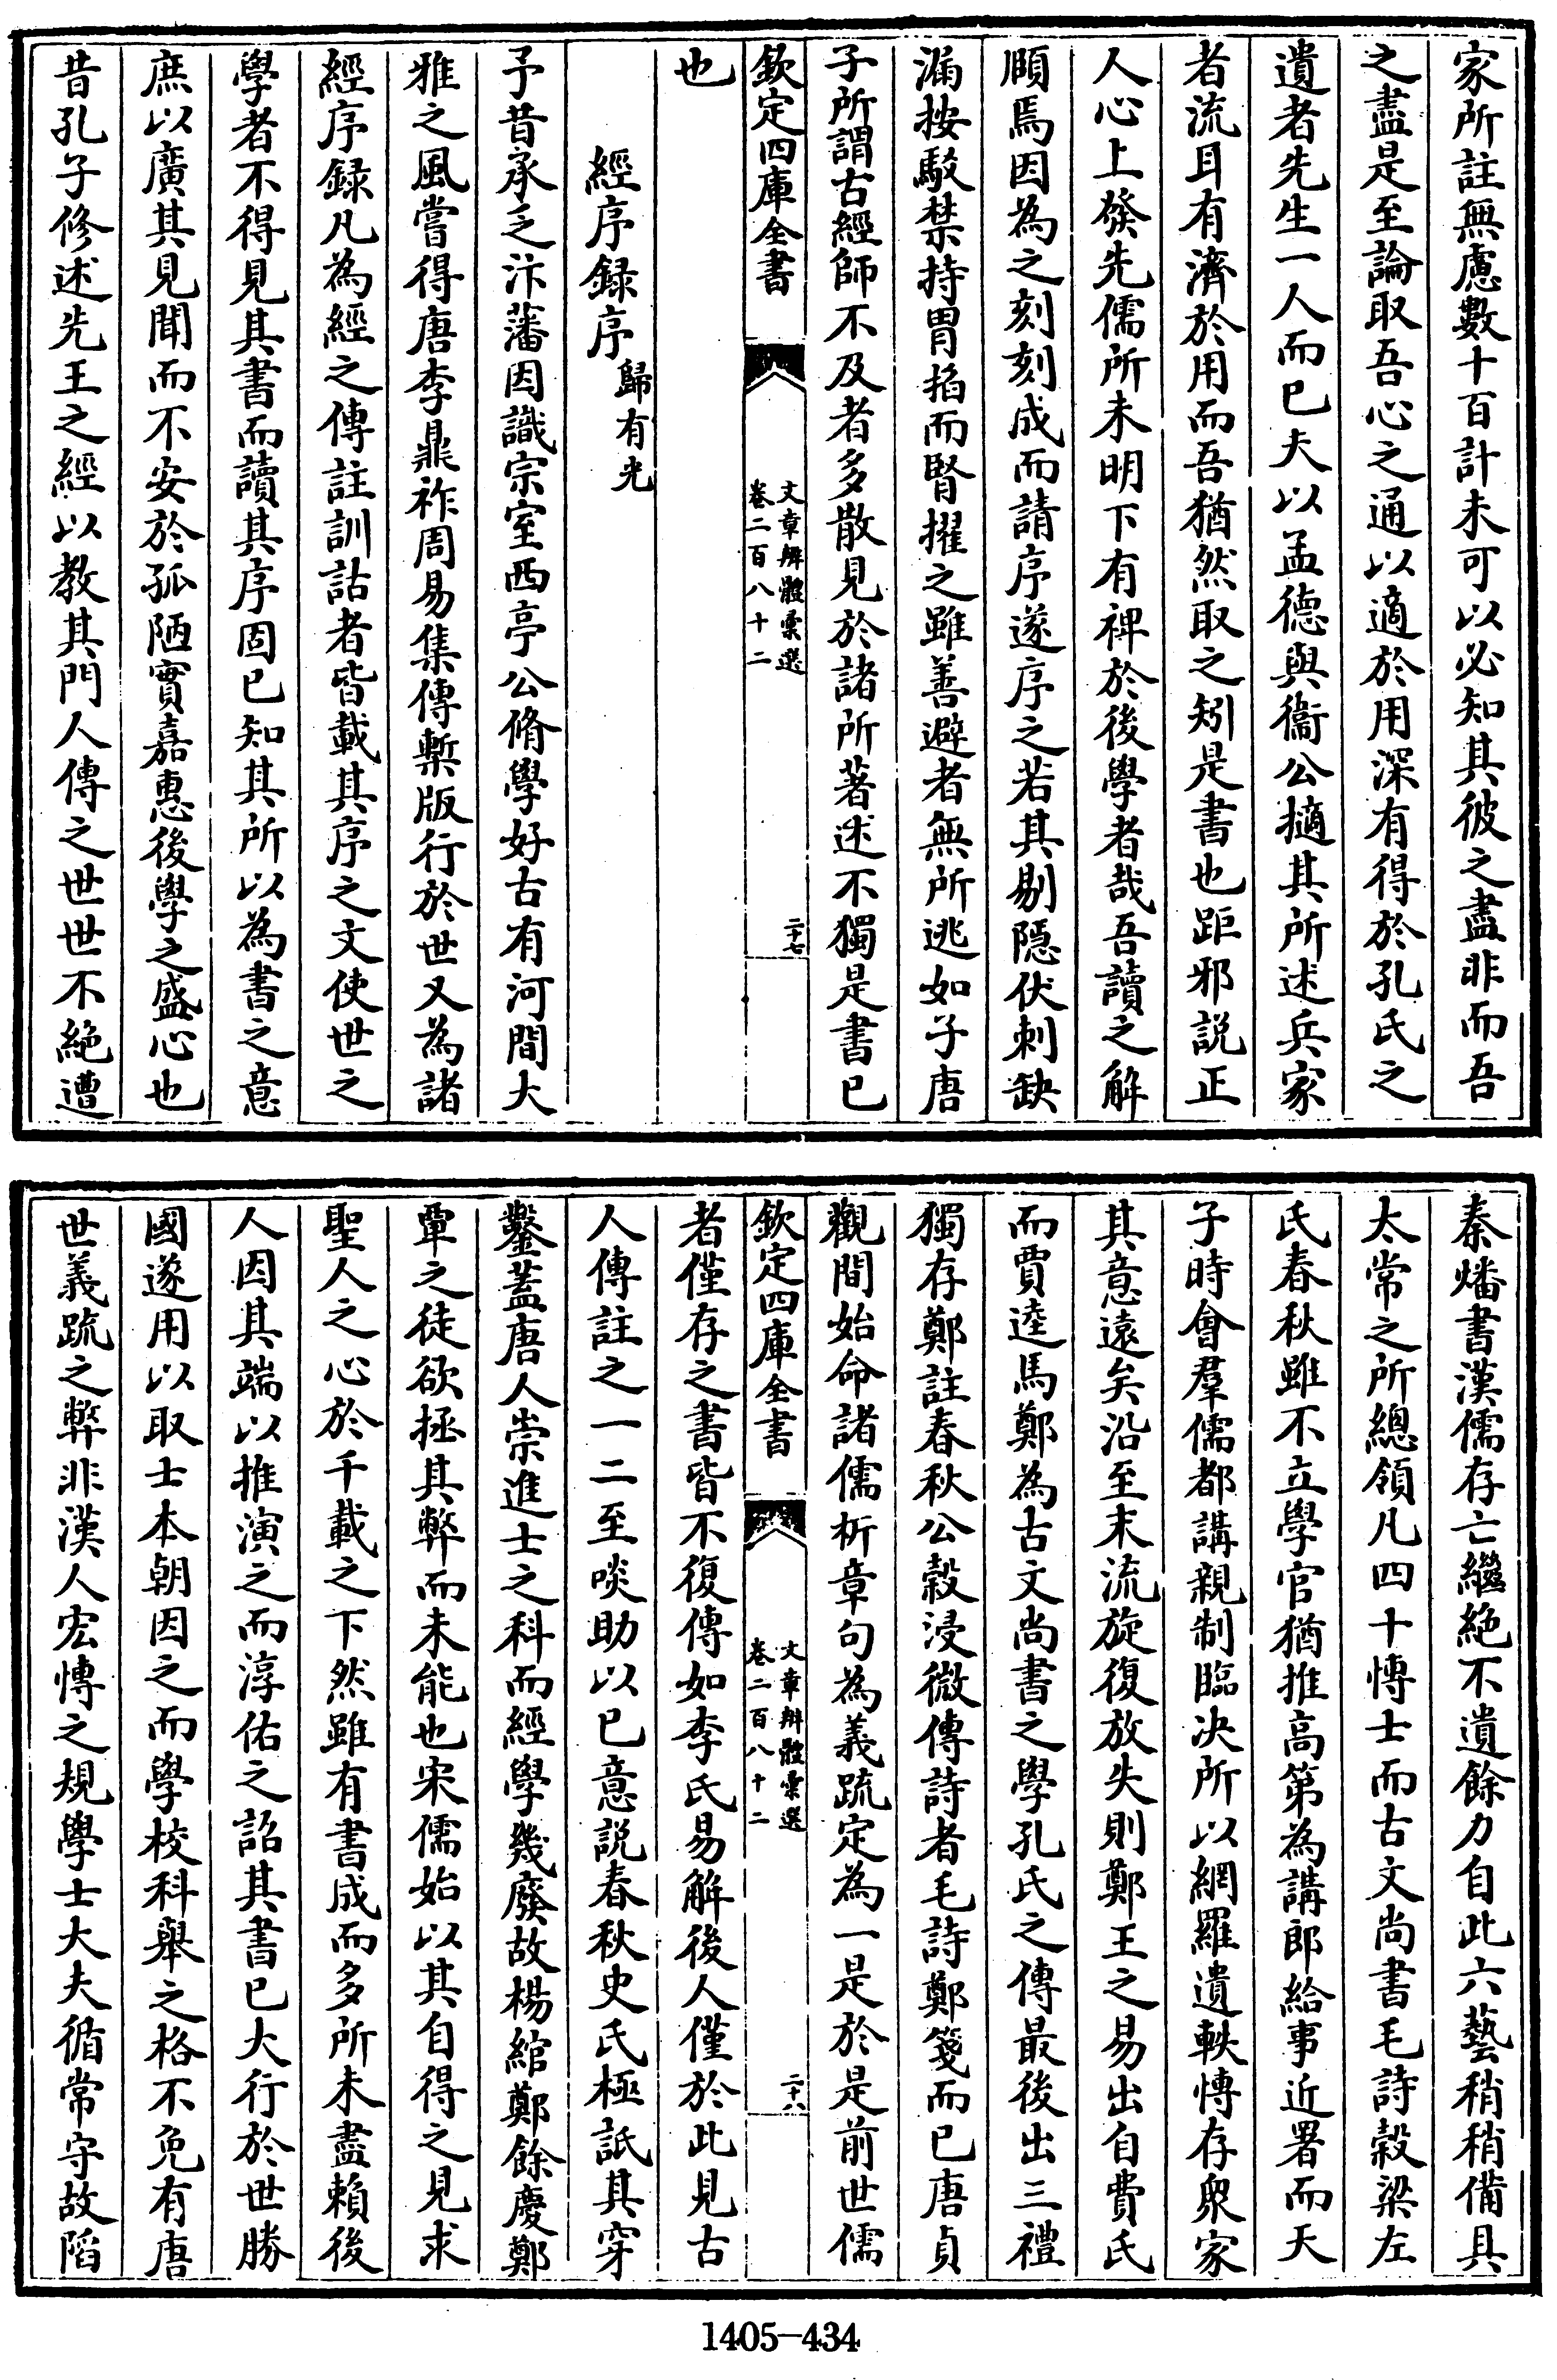 家所註無慮數十百計未可以必知其彼之盡非而吾
之盡是至論取吾心之通以適於用深有得於孔氏之
遺者先生一人而已夫以孟德與衞公擿其所述兵家
者流耳有濟於用而吾猶然取之矧是書也距邪説正
人心上發先儒所未明下有裨於後學者哉吾讀之解
頤焉因為之刻刻成而請序遂序之若其剔隠伏刺缺
漏按駁禁持胃掐而腎擢之雖善避者無所逃如子唐
子所謂古經師不及者多散見於諸所著述不獨是書已
欽定四庫全書
文章辨體彙選
卷二百八十二
二十七
也
經序録序 歸有光
予昔承乏汴藩因識宗室西亭公脩學好古有河間大
雅之風嘗得唐李鼎祚周易集傳槧版行於世又為諸
經序録凡為經之傳註訓詁者皆載其序之文使世之
學者不得見其書而讀其序固已知其所以為書之意
庶以廣其見聞而不安於孤陋實嘉惠後學之盛心也
昔孔子修述先王之經以教其門人傳之世世不絶遭
秦燔書漢儒存亡繼絶不遺餘力自此六藝稍稍備具
太常之所總領凡四十愽士而古文尚書毛詩穀梁左
氏春秋雖不立學官猶推高第為講郎給事近署而天
子時會羣儒都講親制臨决所以網羅遺軼愽存衆家
其意遠矣沿至末流旋復放失則鄭王之易出自費氏
而賈逵馬鄭為古文尚書之學孔氏之傳最後出三禮
獨存鄭註春秋公穀浸微傳詩者毛詩鄭箋而已唐貞
觀間始命諸儒析章句為義疏定為一是於是前世儒
欽定四庫全書
文章辨體彙選
卷二百八十二
二十八
者僅存之書皆不復傳如李氏易解後人僅於此見古
人傳註之一二至啖助以已意説春秋史氏極詆其穿
鑿蓋唐人崇進士之科而經學幾廢故楊綰鄭餘慶鄭
覃之徒欲拯其弊而未能也宋儒始以其自得之見求
聖人之心於千載之下然雖有書成而多所未盡賴後
人因其端以推演之而淳佑之詔其書已大行於世勝
國遂用以取士本朝因之而學校科舉之格不免有唐
世義疏之弊非漢人宏愽之規學士大夫循常守故陷
1405-434